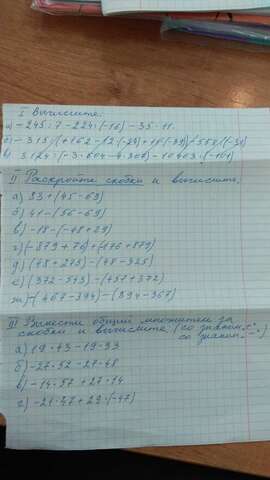 I Вычислите:
а) -245:7-224:(-16)-35·11
б) -315:(+162-12·(-24)+15·(-39)-558:(-31)
в) 3124:(-3·504-4·307)-10403:(-101)
II Раскройте скобки и вычислите:
а) 83+(45-69)
б) 41-(56-69)
в) -18-(-48+29)
г) (-879+76)+(176+879)
д) (48+275)-(48-325)
е) (372-543)-(457+372)
ж) -(467-394)-(394-367)
III Вынести общий множитель за
скобки и вычислите (со знаком
со знаком
а) 19·43-19·33
б) -27·52-27·48
в) -14·57+27·14
г) -21·47+29·(-47)